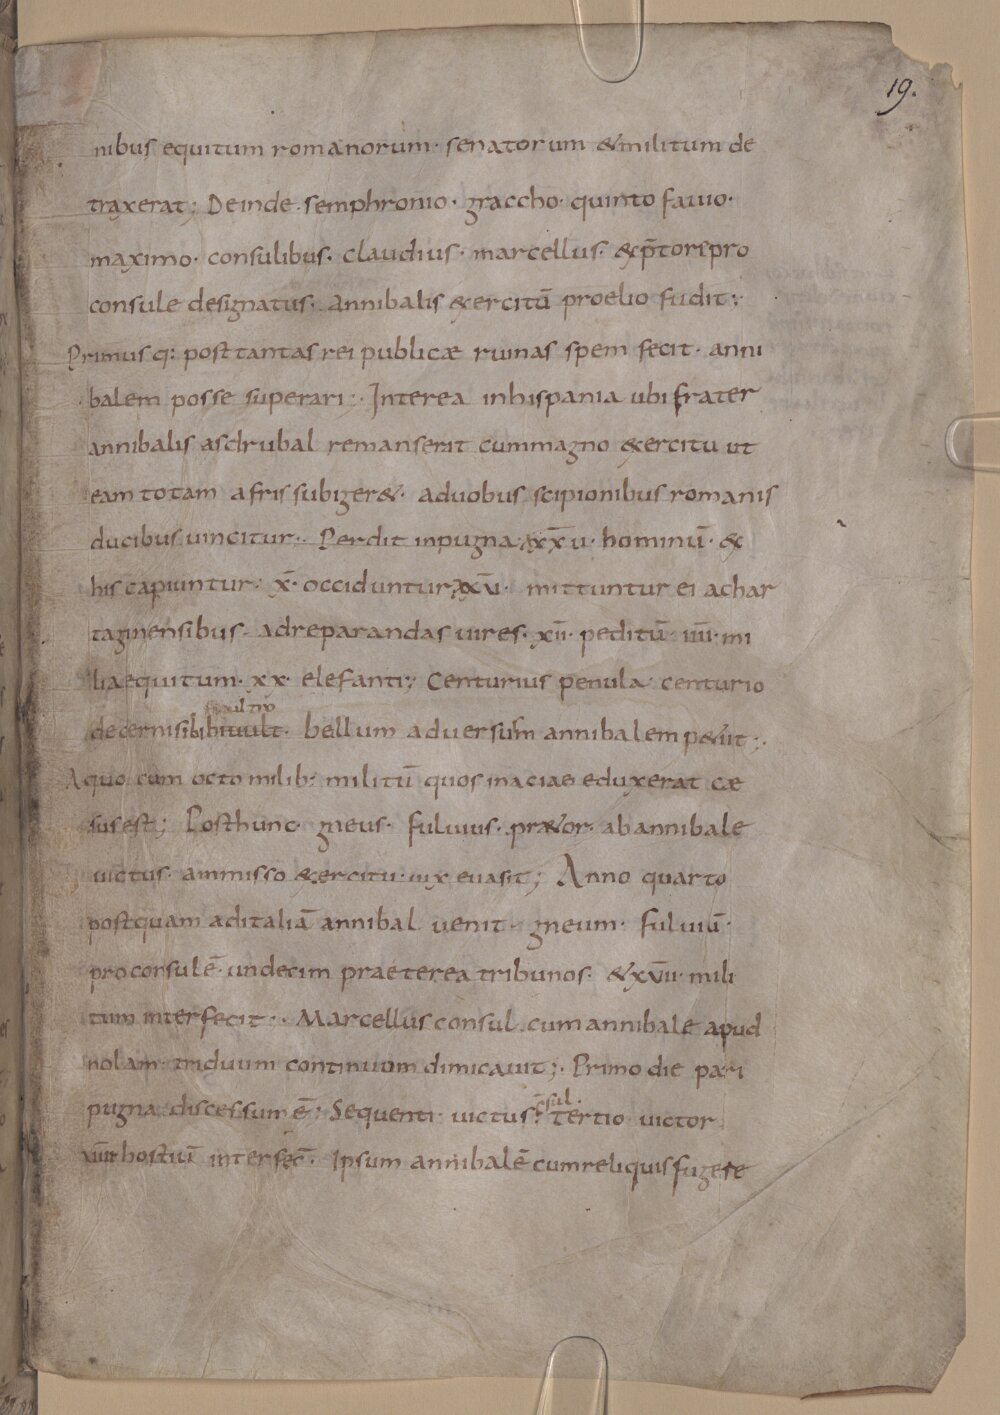 19.
nibus equitum romanorum· senatorum &militum de
traxerat; Deinde semphronio· graccho· quinto fauio·
maximo· consulibus· claudius· marcellus· &p̄tore pro
consule designatus· Annibalis &ercitū proelio fudit;
Primus q: post tantas rei publicæ ruinas spem fecit· anni
balem posse superari;· Interea inhispania ubi frater
annibalis asdrubal remanserat cummagno &ercitu ut
eam totam afris subiger&· aduobus scipionibus romanis
ducibus uincitur·. Perdit inpugna xx̄x̄u· hominū· &
his capiuntur· x̄· occiduntur xx̄ū· mittuntur ei achar
taginensibus· adreparandas uires· xīī· peditū· īīīī· mi
lia equitum· xx· elefanti; Centurius penula centurio
decerni sibi bellum aduersum annibalem p&iit;·
Aquo cum octo milib: militū quos inaciae eduxerat cæ
sus est; Posthunc gneus· fuluius· præ&or· abannibale
uictus· ammisso &ercitu· uix euasit; Anno quarto
postquam aditaliā annibal uenit· gneum· fuluiū·
proconsulē· undecim praeterea tribunos· &xv̄īī· mili
tum interfecit·. Marcellus consul cum annibale apud
nolam triduum continuum dimicauit;· Primo die pari
pugna discessum ē; Sequenti uictus c̄sul· Tertio uictor
hostiū interfec̄· Ipsum annibalē cum reliquis fugere